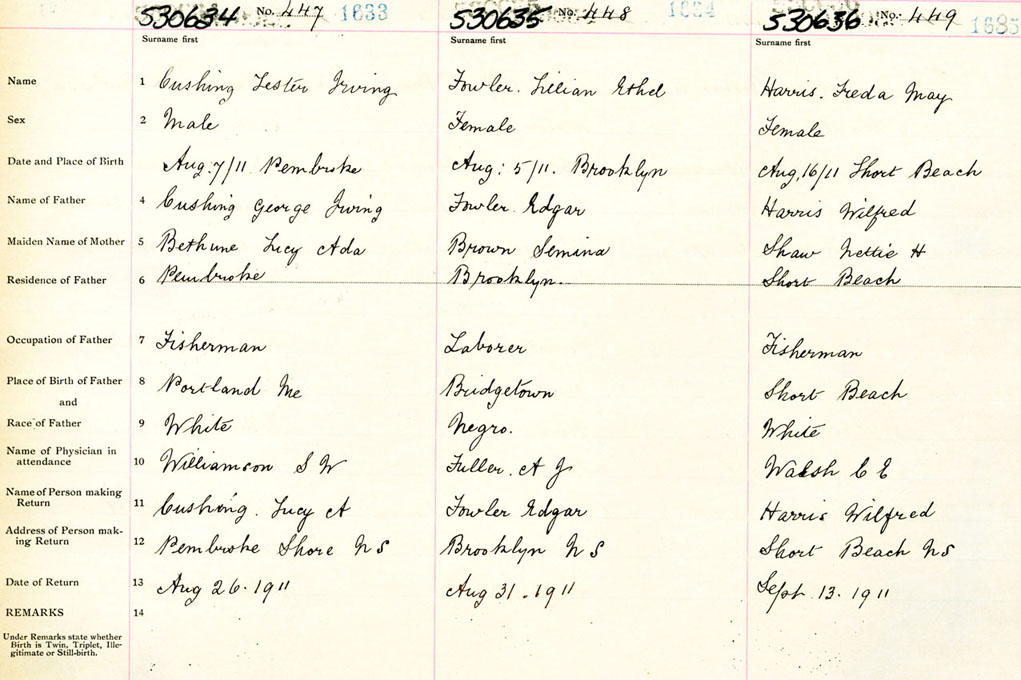 530634 No. 447 1633 530635 No. 448 1634 530636 No. 449 1635
Surname first Surname first Surname first
Name 1 Cushing Lester Irving Fowler. Lillian Ethel Harris. Freda May
Sex 2 Male Female Female
Date and Place of Birth Aug. 7/11 Pembroke Aug: 5/11. Brooklyn Aug, 16/11 Short Beach
Name of Father 4 Cushing George Irving Fowler Edgar Harris Wilfred
Maiden Name of Mother 5 Bethune Lucy Ada Brown Semina Shaw Nettie H
Residence of Father 6 Pembroke Brooklyn. Short Beach
Occupation of Father 7 Fisherman Laborer Fisherman
Place of Birth of Father 8 Portland Me Bridgetown Short Beach
and
Race of Father 9 White Negro. White
Name of Physician in
attendance 10 Williamson S W Fuller. A J Walsh C E
Name of Person making
Return 11 Cushing. Lucy A Fowler Edgar Harris Wilfred
Address of Person mak-
ing Return 12 Pembroke Shore N S Brooklyn N S Short Beach N S
Date of Return 13 Aug 26. 1911 Aug 31. 1911 Sept. 13. 1911
REMARKS 14
Under Remarks state whether
Birth is Twin, Triplet, Ille-
gitimate or Still-birth.